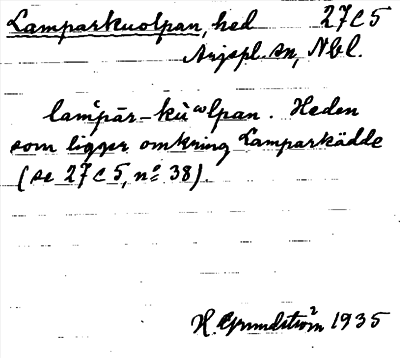 Lamparkuolpan, hed 27C5
Arjepl. sn, Nbl.
lam̄pār-kùωlpan. Heden
som ligger omkring Lamparkädde
(se 27C5, nº 38).
H. Grundström 1935